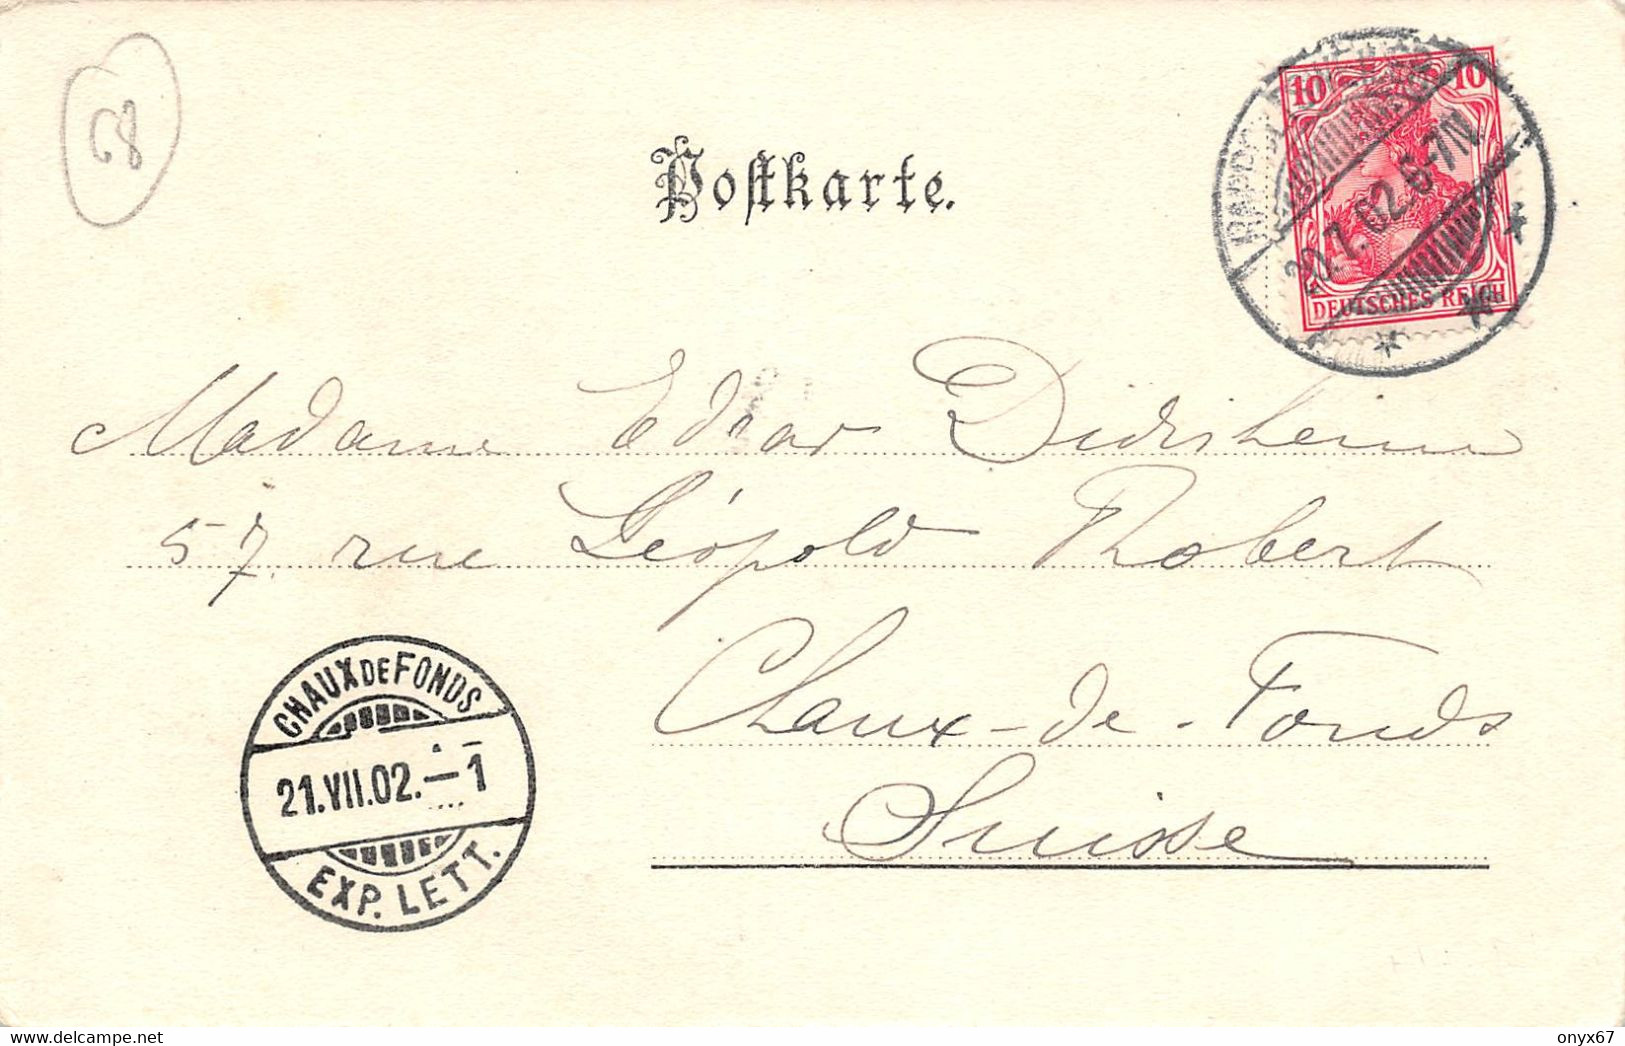 68
Postkarte.
10 10
20.7.02. 6-7N.
DEUTSCHES REICH
Madame Edgar Didisheim
57, rue Léopold Robert
Chaux-de-Fonds
Suisse
CHAUX DE FONDS
21.VII.02.–1
EXP. LETT.
delcampe.net
onyx67